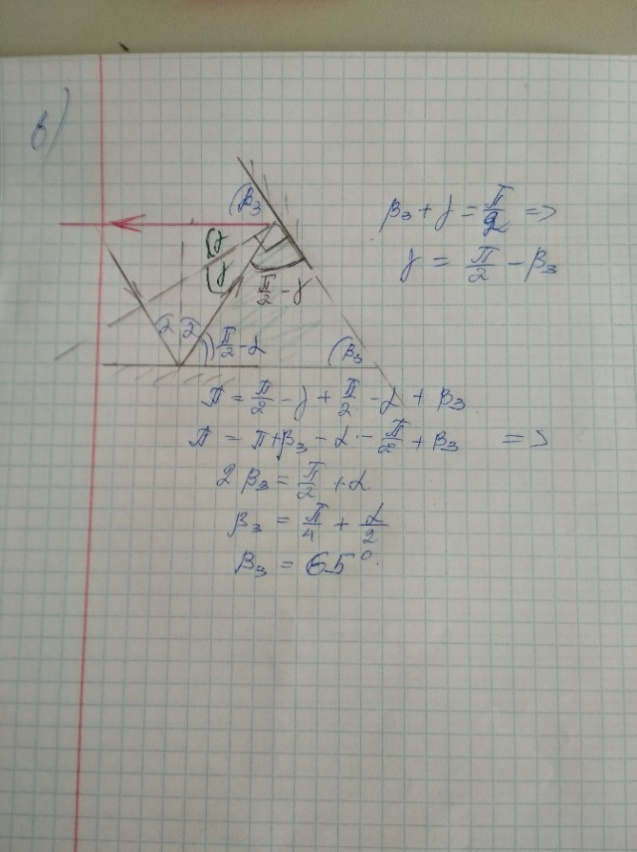 в)
β₃
β₃ + γ = π/2 =>
γ = π/2 - β₃
γ
γ
π/2 - γ
α α
π/2 - α
β₃
π = π/2 - γ + π/2 - α + β₃
π = π + β₃ - α - π/2 + β₃ =>
2β₃ = π/2 + α
β₃ = π/4 + α/2
β₃ = 65°